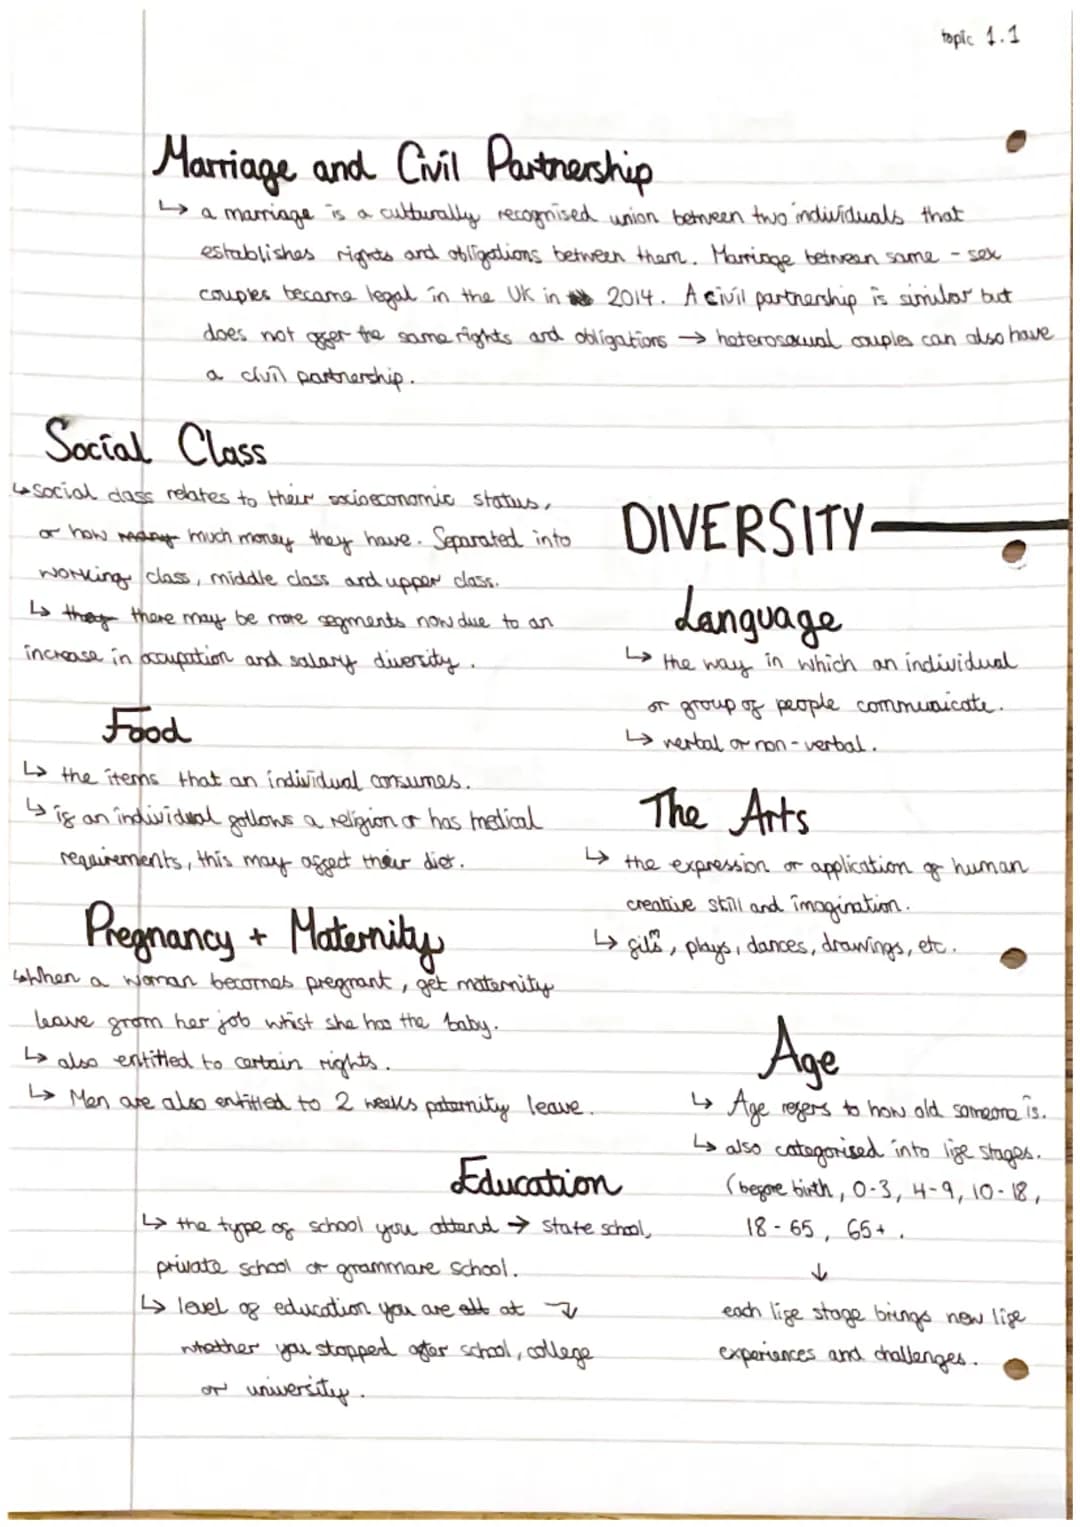 topic 1.1
Marriage and Civil Partnership
↳ a marriage is a culturally recognised union between two individuals that
establishes rights and obligations between them. Marriage between same - sex
couples became legal in the UK in 2014. A civil partnership is similar but
does not offer the same rights and obligations → heterosexual couples can also have
a civil partnership.
Social Class
↳ social class relates to their socioeconomic status,
or how many much money they have. Separated into
working class, middle class and upper class.
↳ they there may be more segments now due to an
increase in occupation and salary diversity.
Food
↳ the items that an individual consumes.
↳ if an individual follows a religion or has medical
requirements, this may affect their diet.
Pregnancy + Maternity
↳ When a woman becomes pregnant, get maternity
leave from her job whist she has the baby.
↳ also entitled to certain rights.
↳ Men are also entitled to 2 weeks paternity leave.
Education
↳ the type of school you attend → state school,
private school or grammare school.
↳ level of education you are at
whether you stopped after school, college
or university.
DIVERSITY
Language
↳ the way in which an individual
or group of people communicate.
↳ verbal or non-verbal.
The Arts
↳ the expression or application of human
creative skill and imagination.
↳ film, plays, dances, drawings, etc.
Age
↳ Age refers to how old someone is.
↳ also categorised into life stages.
(before birth, 0-3, 4-9, 10-18,
18-65, 65+.
↓
each life stage brings new life
experiences and challenges.